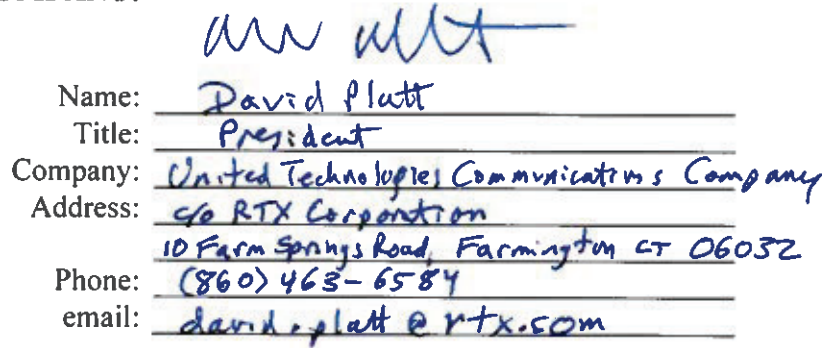 Name: David Platt
Title: President
Company: United Technologies Communications Company
Address: c/o RTX Corporation
10 Farm Springs Road, Farmington CT 06032
Phone: (860) 463-6584
email: david.platt@rtx.com